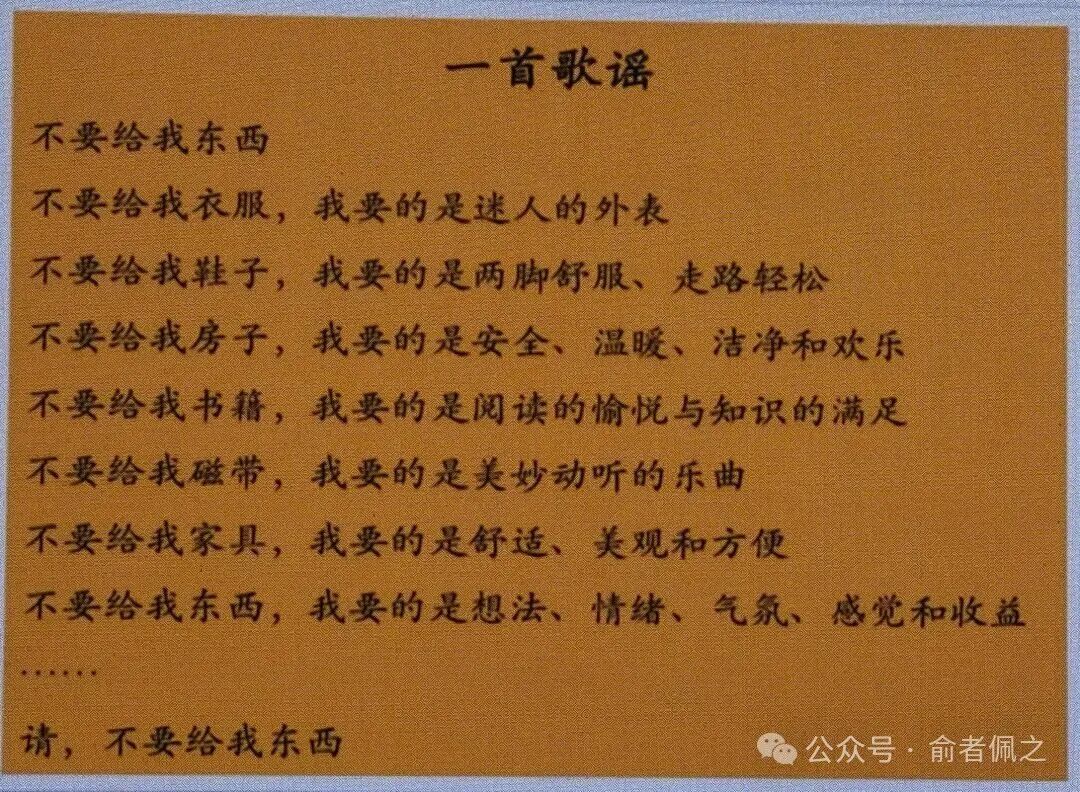 一首歌谣
不要给我东西
不要给我衣服，我要的是迷人的外表
不要给我鞋子，我要的是两脚舒服、走路轻松
不要给我房子，我要的是安全、温暖、洁净和欢乐
不要给我书籍，我要的是阅读的愉悦与知识的满足
不要给我磁带，我要的是美妙动听的乐曲
不要给我家具，我要的是舒适、美观和方便
不要给我东西，我要的是想法、情绪、气氛、感觉和收益
······
请，不要给我东西
公众号·俞者佩之